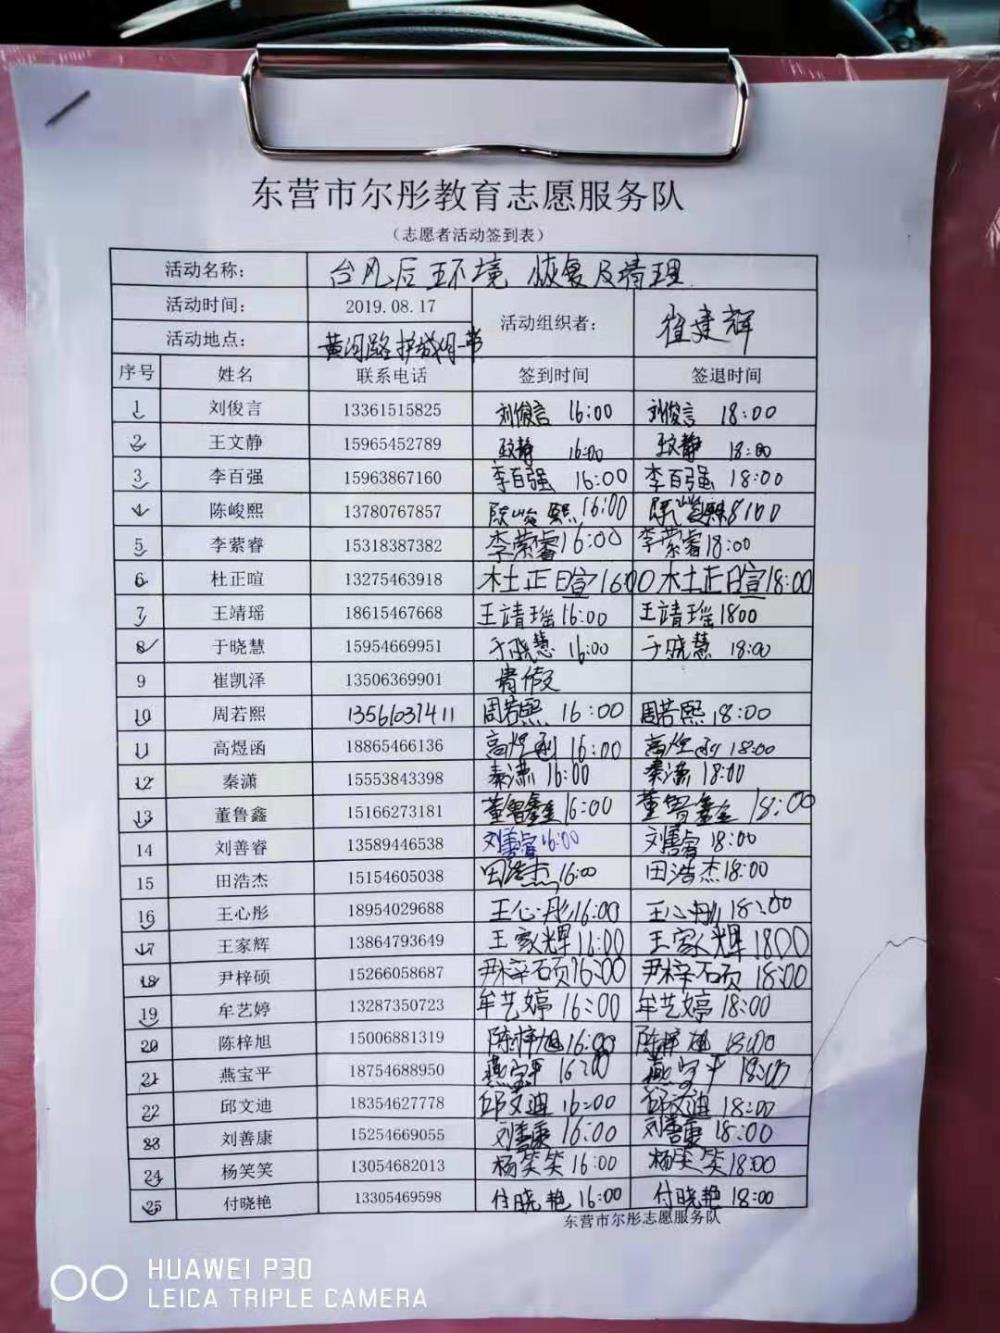 东营市尔彤教育志愿服务队
（志愿者活动签到表）
活动名称： 台风后环境 恢复及清理
活动时间： 2019.08.17 活动组织者： 崔建辉
活动地点： 黄河路护城河一带
序号 姓名 联系电话 签到时间 签退时间
1 刘俊言 13361515825 刘俊言 16:00 刘俊言 18:00
2 王文静 15965452789 王文静 16:00 王文静 18:00
3 李百强 15963867160 李百强 16:00 李百强 18:00
4 陈峻熙 13780767857 陈峻熙 16:00 陈峻熙 18:00
5 李萦睿 15318387382 李萦睿 16:00 李萦睿 18:00
6 杜正暄 13275463918 杜正暄 16:00 杜正暄 18:00
7 王靖瑶 18615467668 王靖瑶 16:00 王靖瑶 1800
8 于晓慧 15954669951 于晓慧 16:00 于晓慧 18:00
9 崔凯泽 13506369901 请假
10 周若熙 13561031411 周若熙 16:00 周若熙 18:00
11 高煜函 18865466136 高煜函 16:00 高煜函 18:00
12 秦潇 15553843398 秦潇 16:00 秦潇 18:00
13 董鲁鑫 15166273181 董鲁鑫 16:00 董鲁鑫 18:00
14 刘善睿 13589446538 刘善睿 16:00 刘善睿 18:00
15 田浩杰 15154605038 田浩杰 16:00 田浩杰 18:00
16 王心彤 18954029688 王心彤 16:00 王心彤 18:00
17 王家辉 13864793649 王家辉 16:00 王家辉 1800
18 尹梓硕 15266058687 尹梓硕 16:00 尹梓硕 18:00
19 牟艺婷 13287350723 牟艺婷 16:00 牟艺婷 18:00
20 陈梓旭 15006881319 陈梓旭 16:00 陈梓旭 18:00
21 燕宝平 18754688950 燕宝平 16:00 燕宝平 18:00
22 邱文迪 18354627778 邱文迪 16:00 邱文迪 18:00
23 刘善康 15254669055 刘善康 16:00 刘善康 18:00
24 杨笑笑 13054682013 杨笑笑 16:00 杨笑笑 18:00
25 付晓艳 13305469598 付晓艳 16:00 付晓艳 18:00
东营市尔彤志愿服务队
HUAWEI P30
LEICA TRIPLE CAMERA